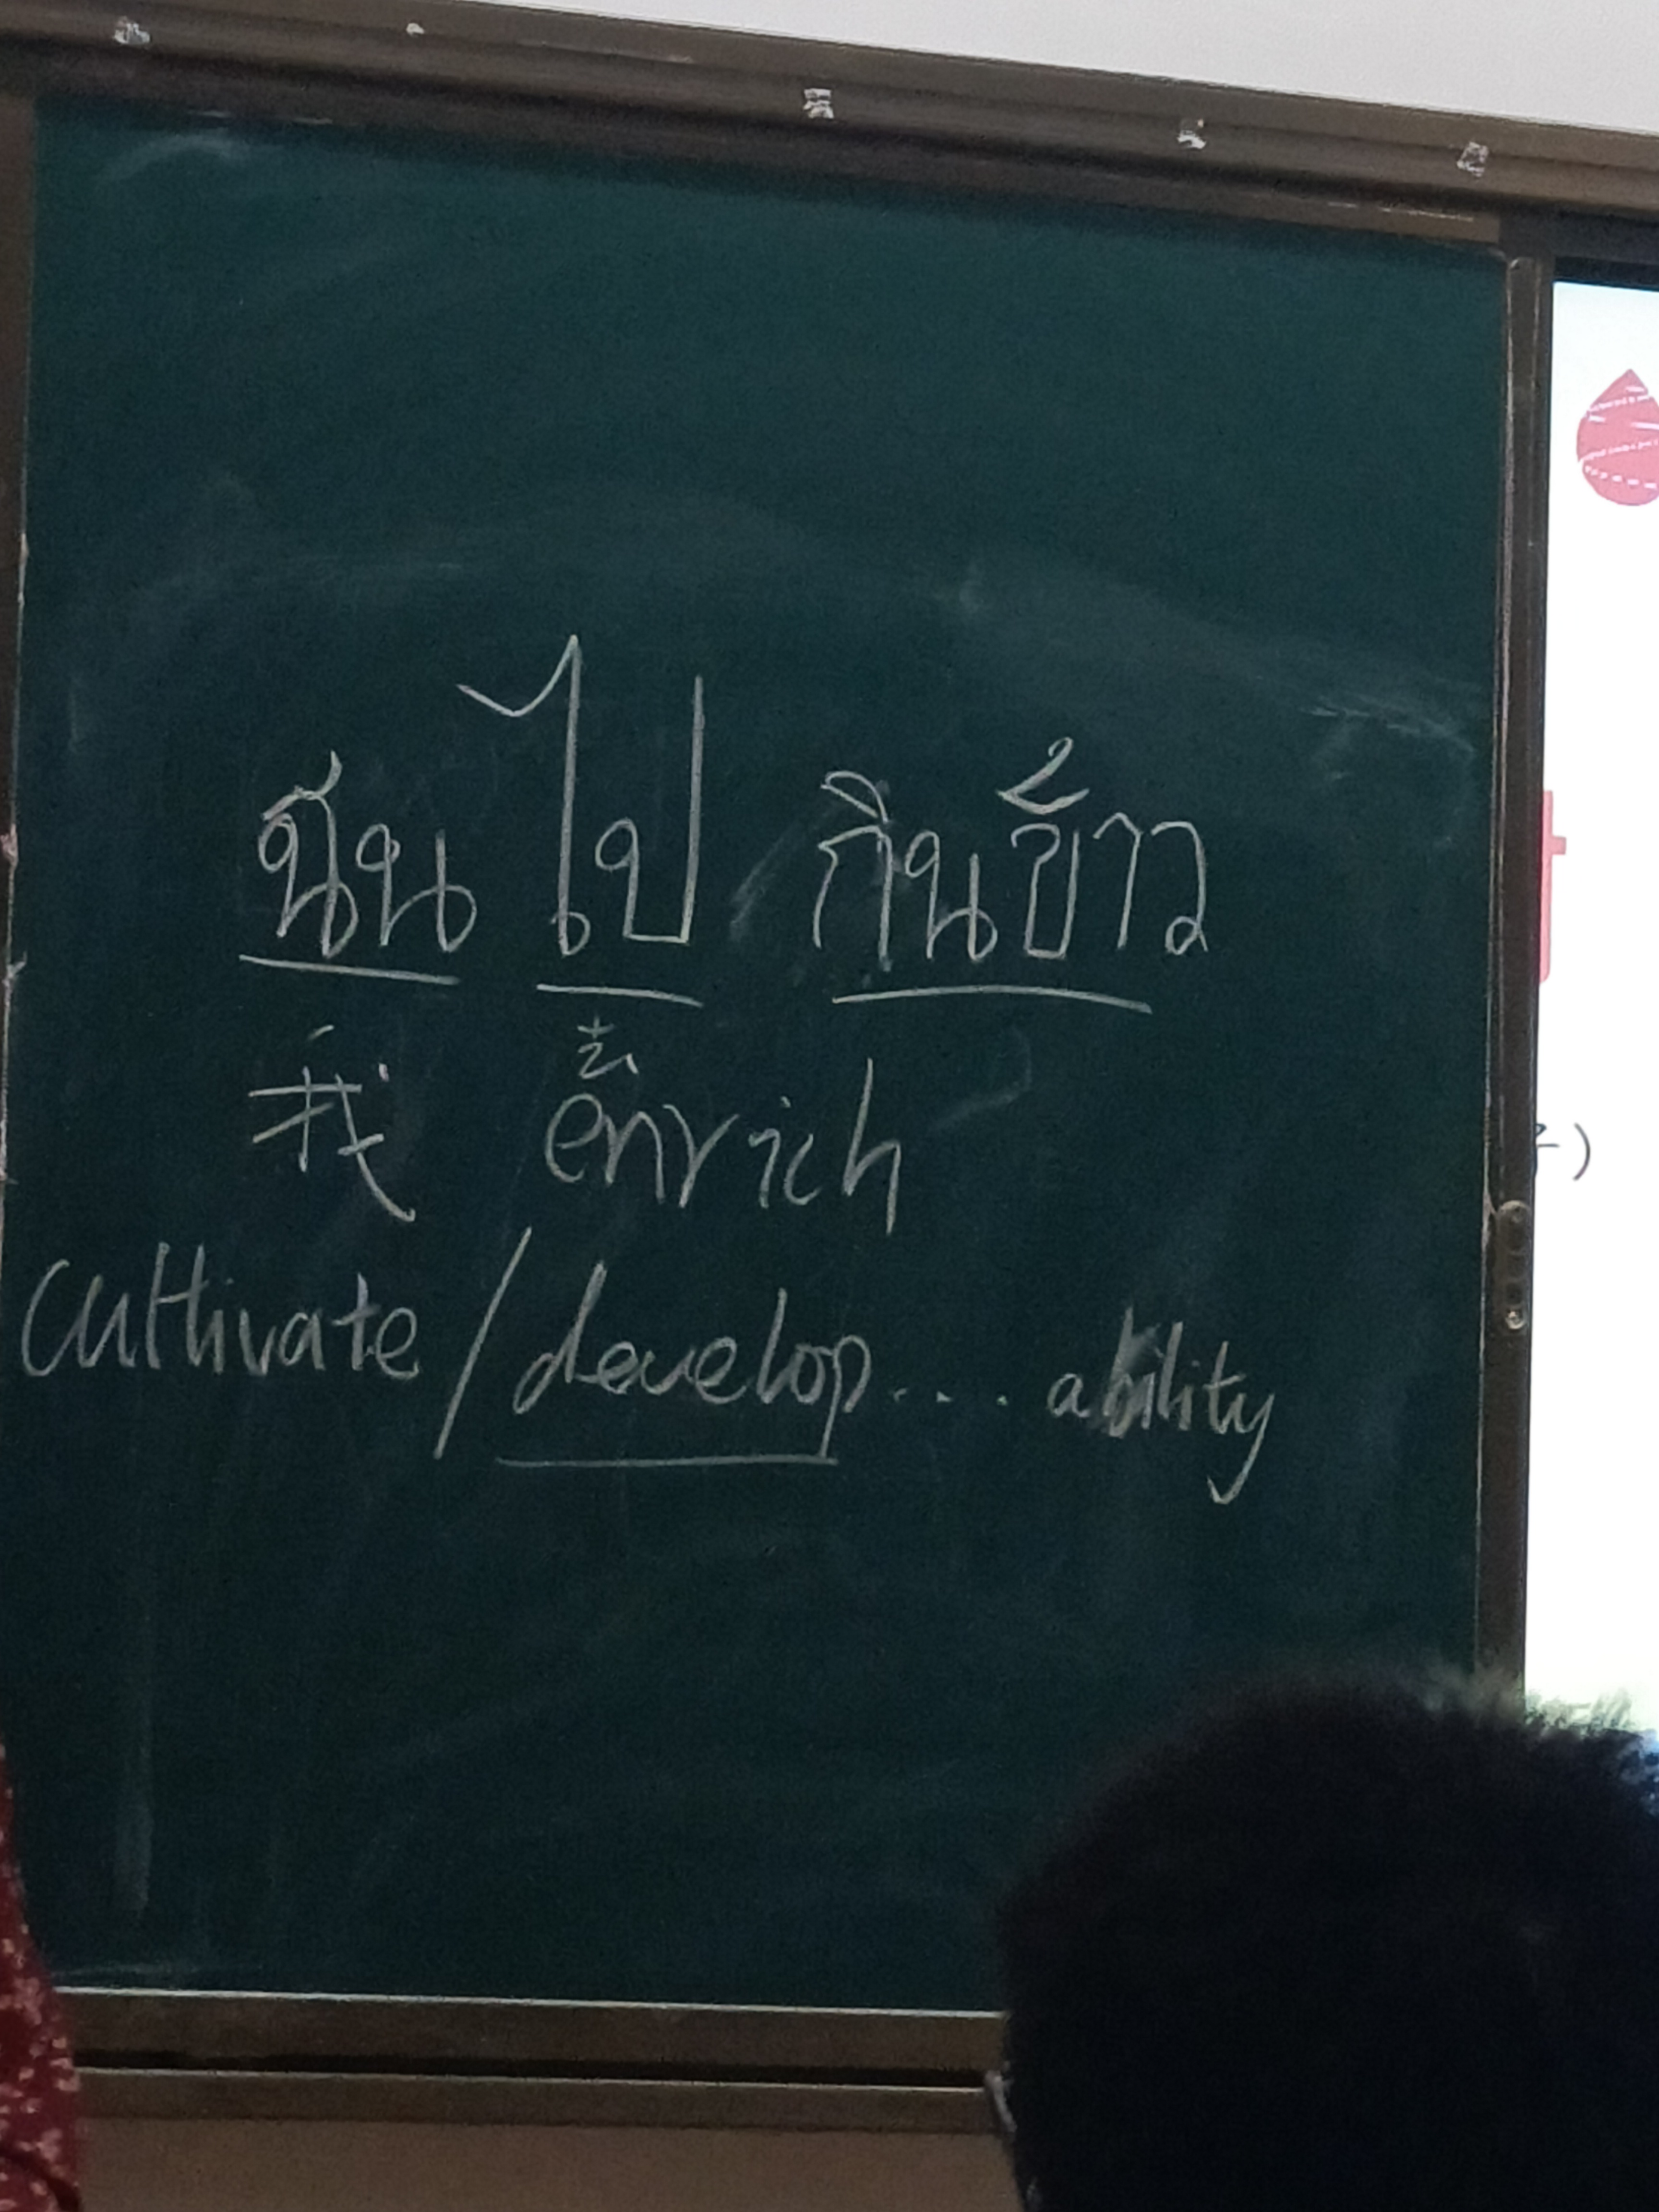 ฉันไป กินข้าว
我 去
enrich
cultivate / develop .... ability